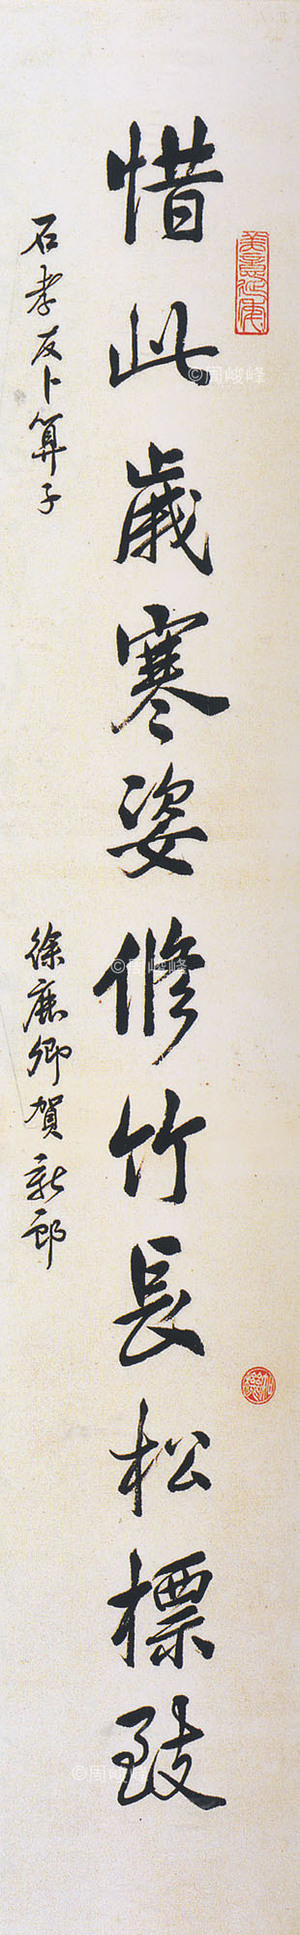 惜此歲寒姿修竹長松標致
石孝友卜算子
徐鹿卿賀新郎
美意延年
©周峻峰
©周峻峰
©周峻峰